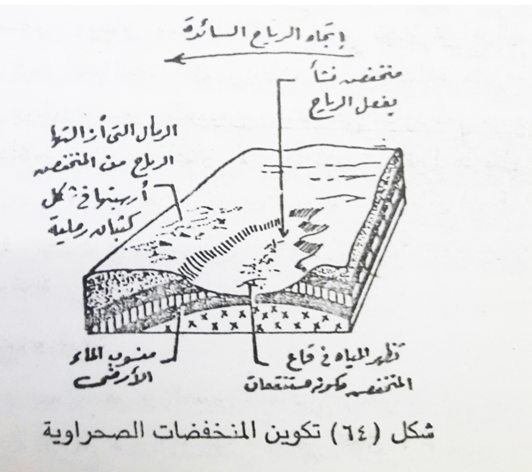 إتجاه الرياح السائدة
منخفض نشأ
بفعل الرياح
الرمال التى أزالتها
الرياح من المنخفض
أرسبتها فى شكل
كثبان رملية
منسوب الماء
الأرضى
تظهر المياه فى قاع
المنخفض مكونه مستنقعات
شكل (٦٤) تكوين المنخفضات الصحراوية